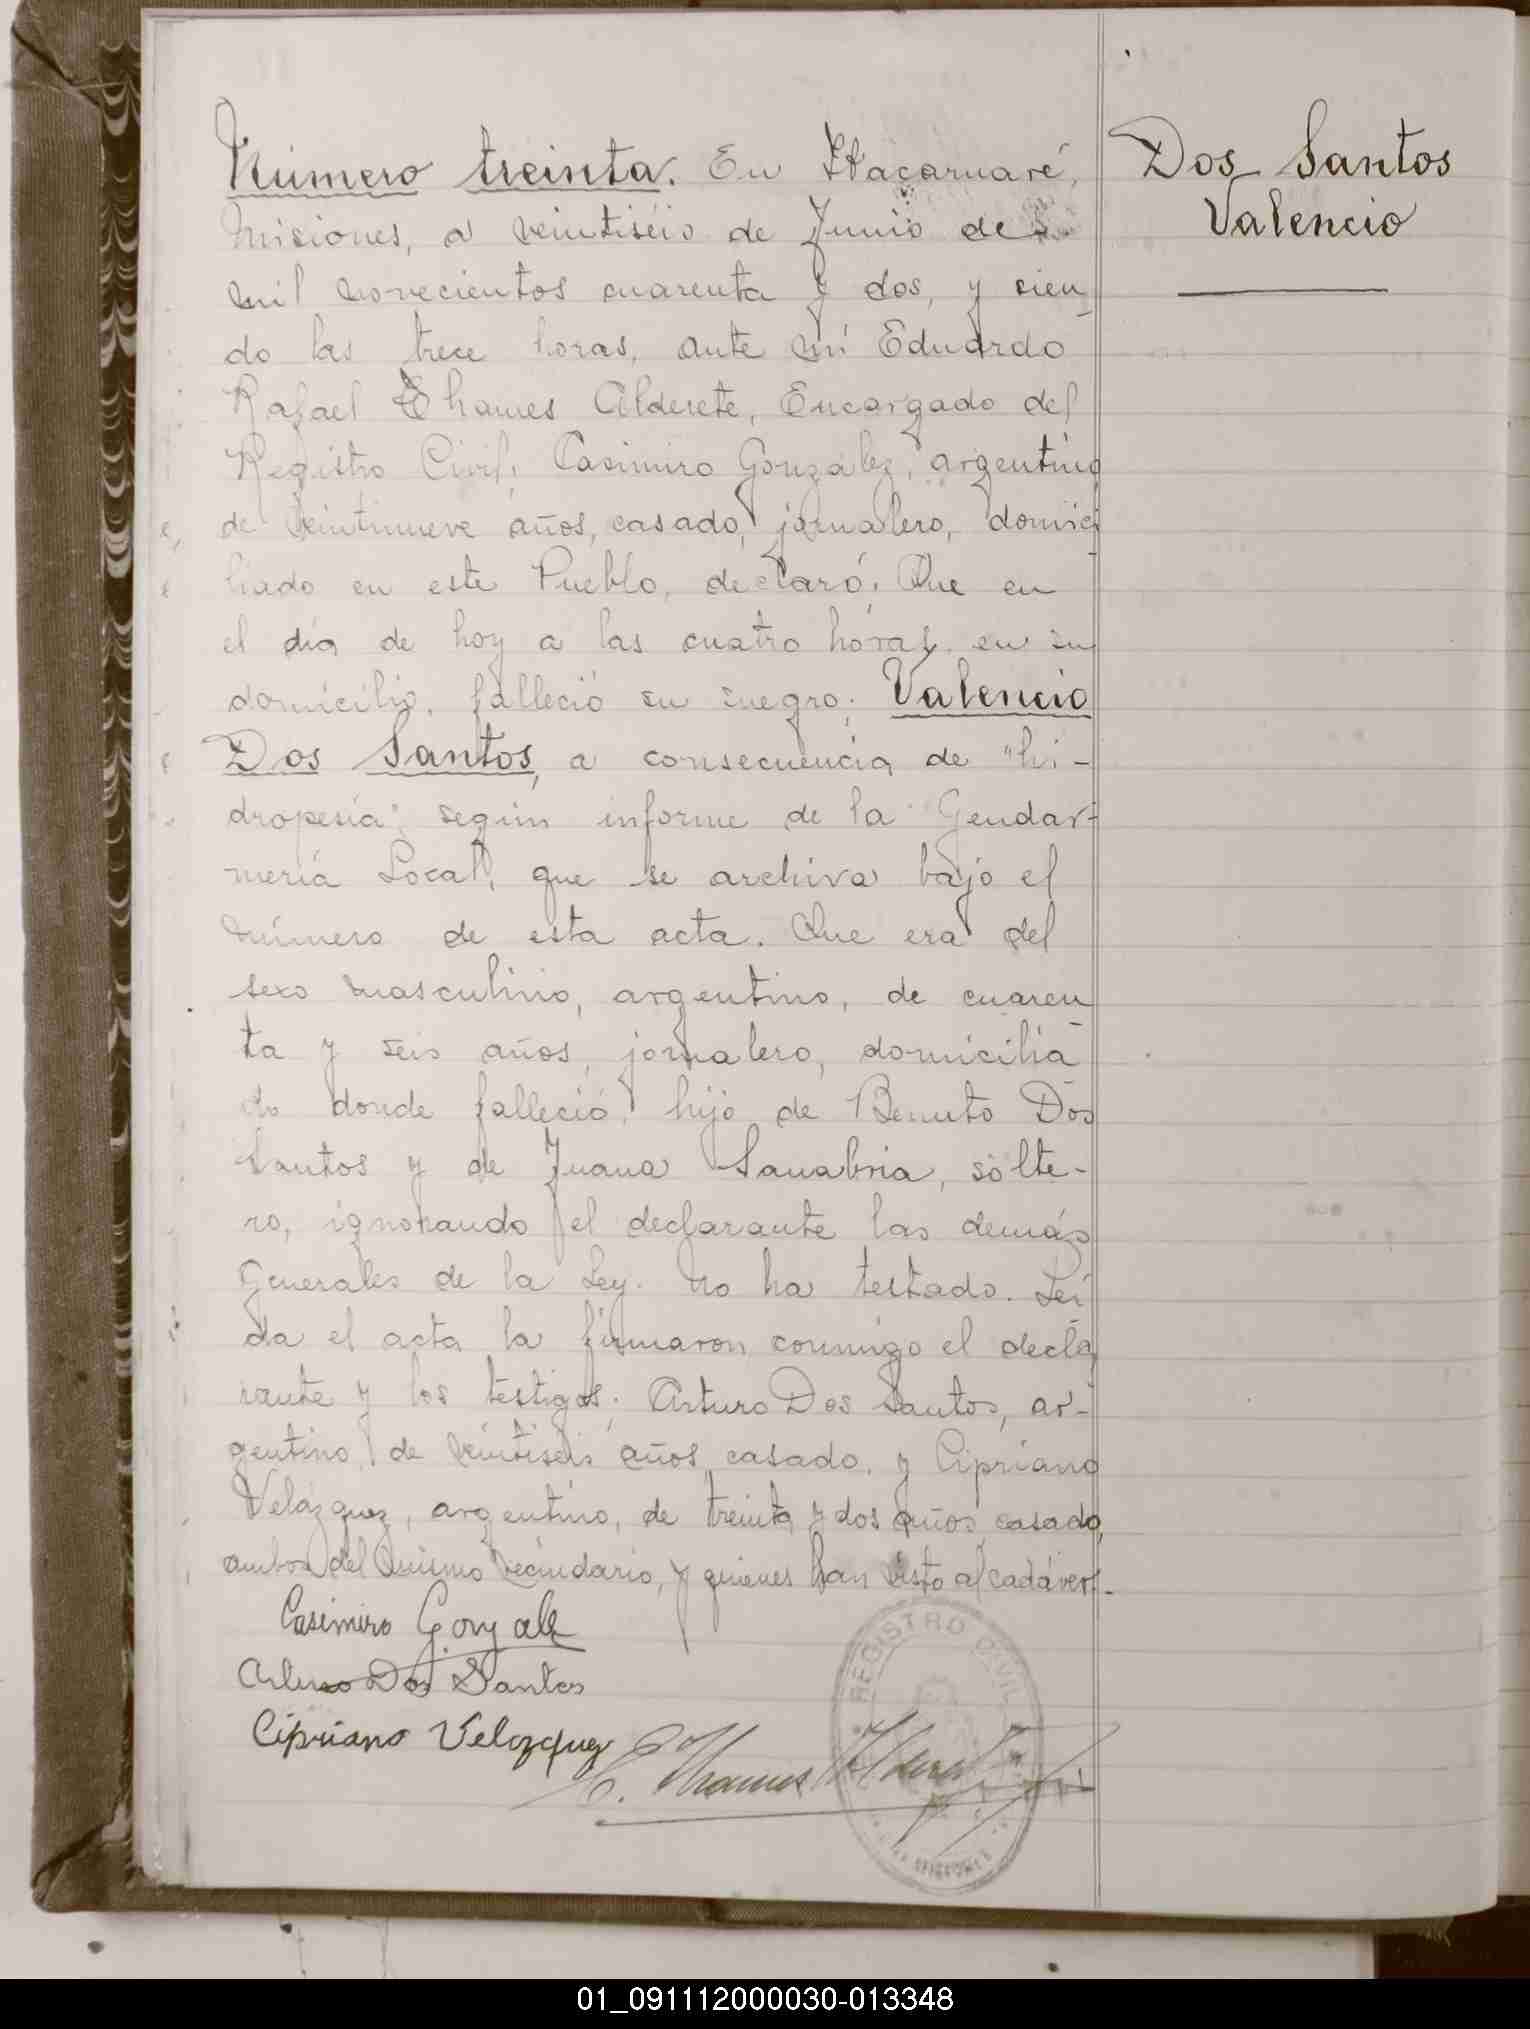 Número treinta. En Itacaruaré,
Misiones, a veintiséis de Junio de
mil novecientos cuarenta y dos, y sien
do las trece horas, ante mí Eduardo
Rafael Thames Alderete, Encargado del
Registro Civil, Casimiro González, argentino
de veintinueve años, casado, jornalero, domici
liado en este Pueblo, declaró: Que en
el día de hoy a las cuatro horas, en su
domicilio, falleció su suegro; Valencio
Dos Santos, a consecuencia de "hi-
dropesía"; según informe de la Gendar-
mería Local, que se archiva bajo el
número de esta acta. Que era del
sexo masculino, argentino, de cuaren
ta y seis años, jornalero, domicilia
do donde falleció, hijo de Benuto Dos
Santos y de Juana Sanabria, solte-
ro, ignorando el declarante las demás
generales de la Ley. No ha testado. Leí
da el acta la firmaron conmigo el decla
rante y los testigos; Arturo Dos Santos, ar-
gentino, de veintiseis años, casado, y Cipriano
Velázquez, argentino, de treinta y dos años, casado,
ambos del mismo vecindario, y quienes han visto al cadáver.-
Casimiro Gonzalez
Arturo Dos Santos
Cipriano Velazquez
E. Thames Alderete
REGISTRO CIVIL
MISIONES
Dos Santos
Valencio
01_091112000030-013348